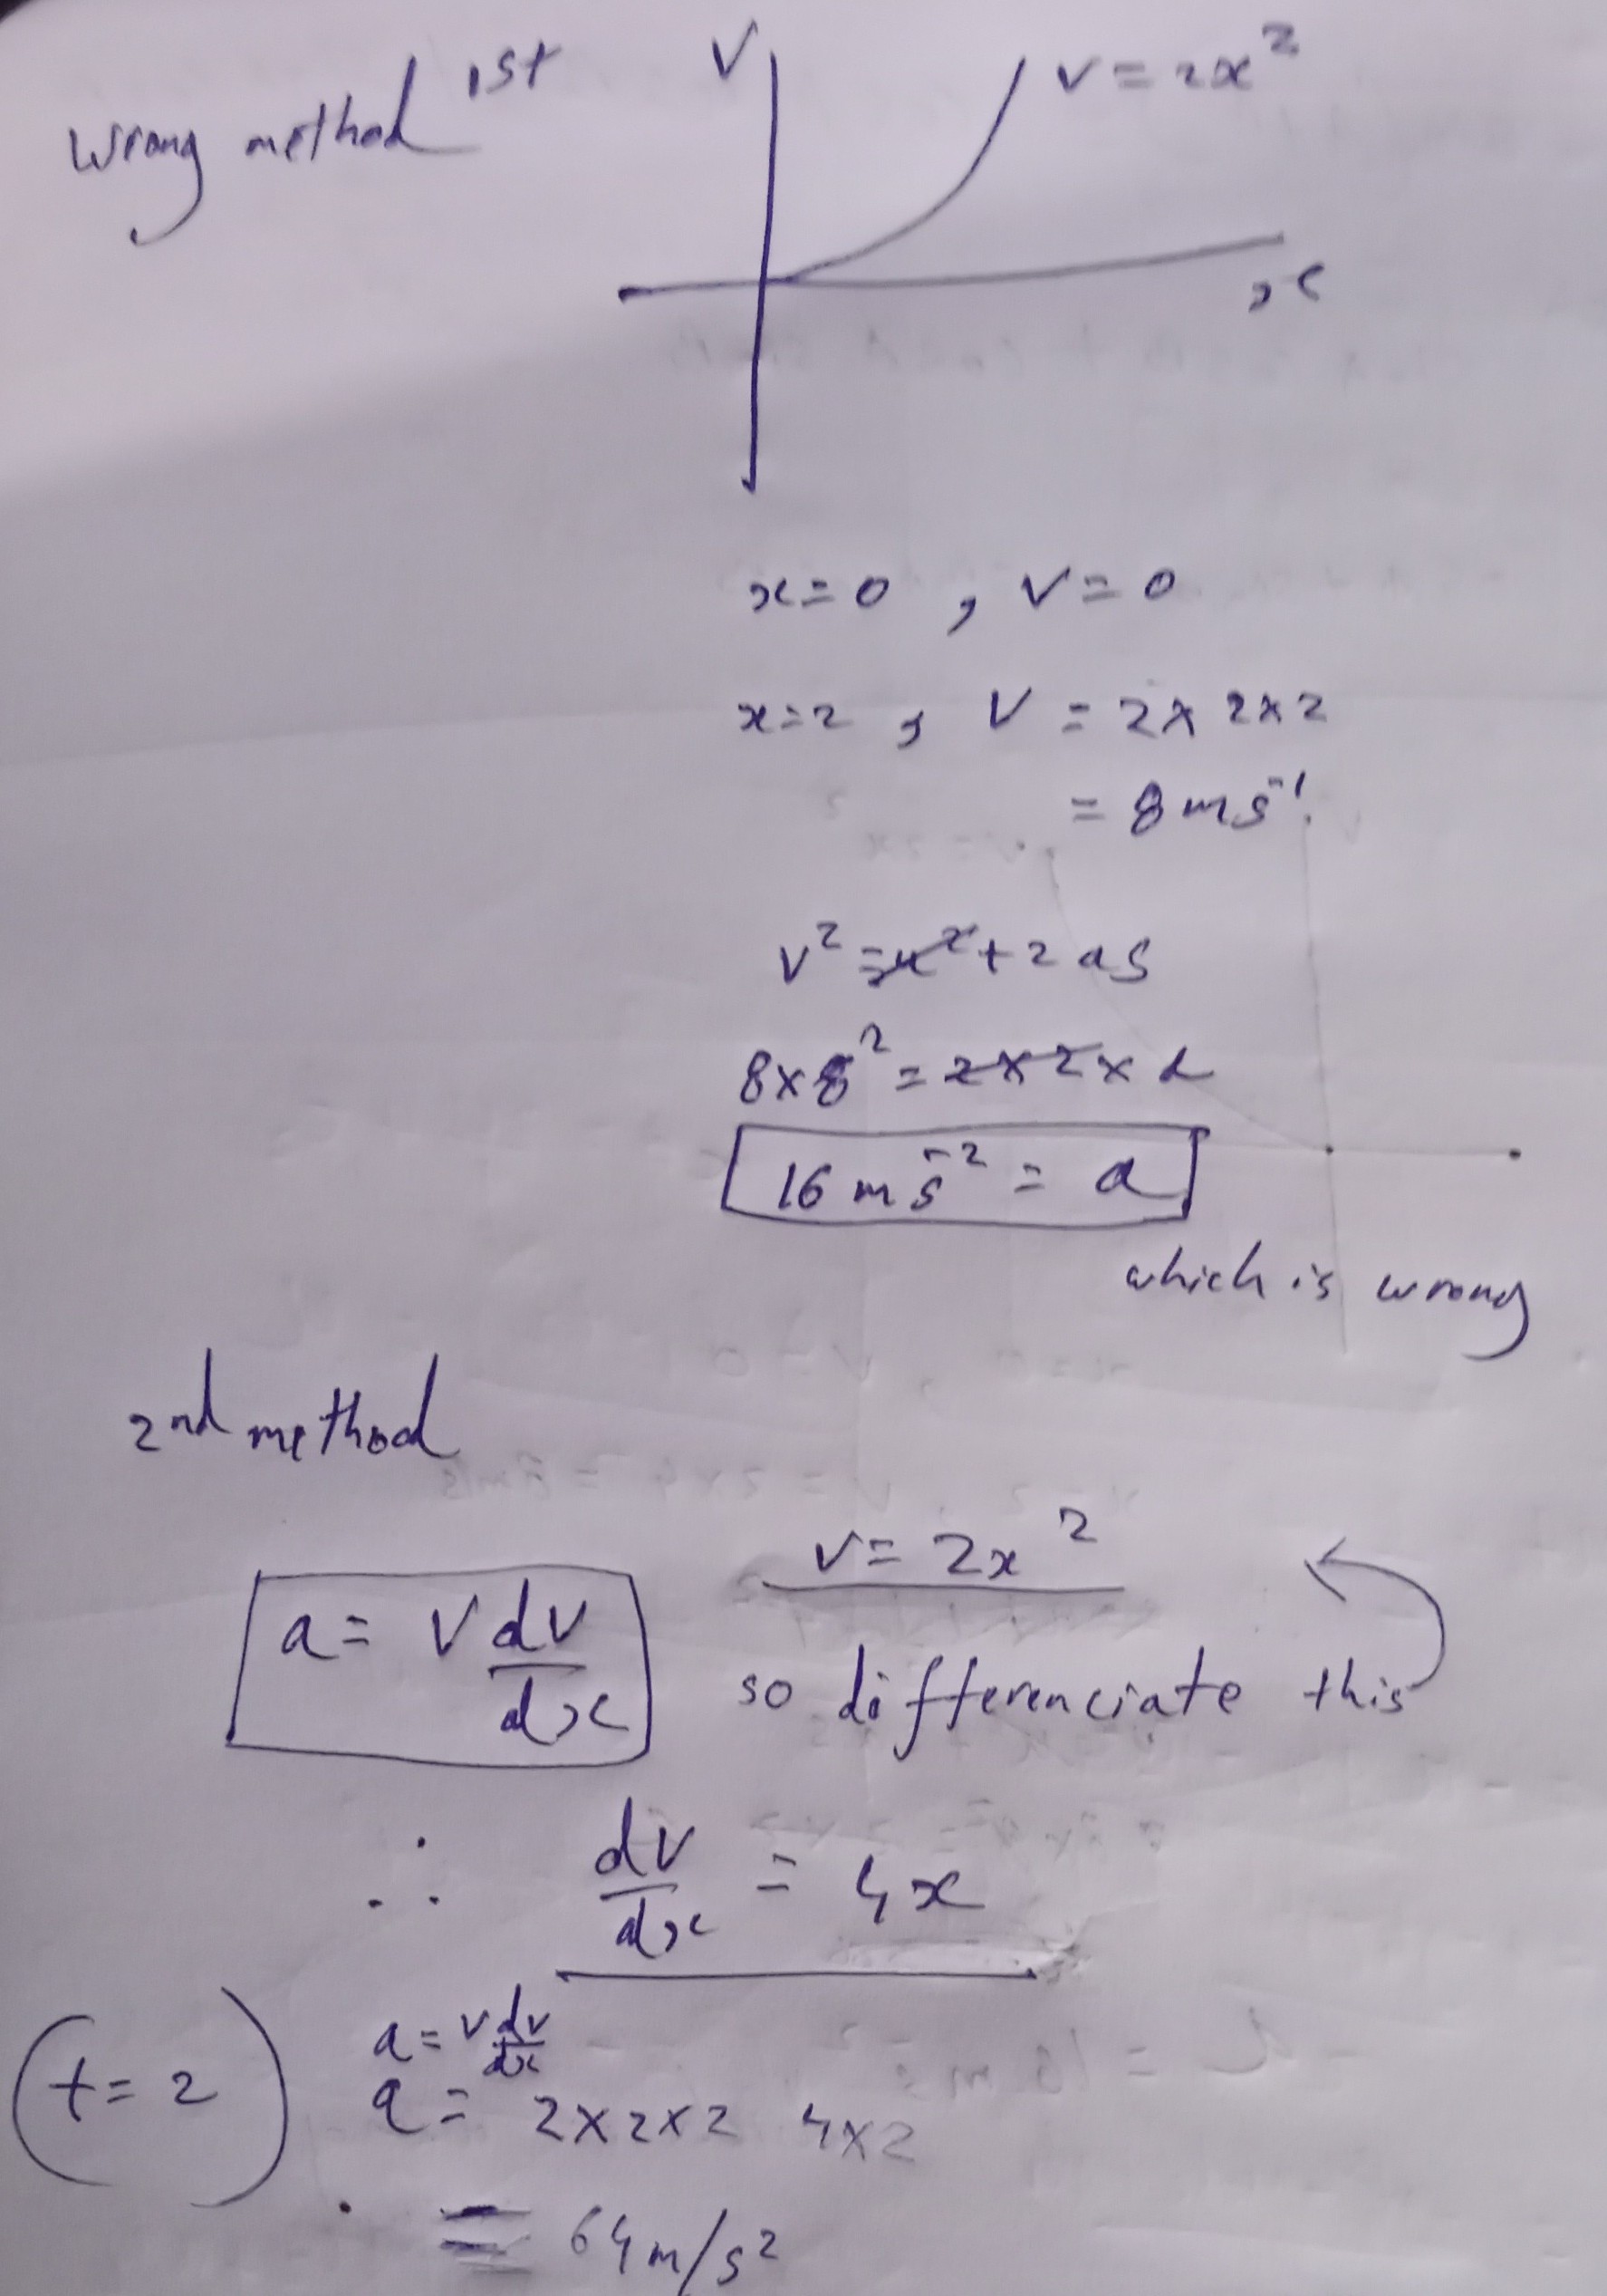 wrong method 1st
V
v = 2x²
x
x=0 , V=0
x=2 , V = 2x 2x2
= 8 ms⁻¹.
v² = u² + 2as
8x8² = 2x2x a
16 ms⁻² = a
which is wrong
2nd method
v= 2x²
a= v dv/dx
so differenciate this
∴ dv/dx = 4x
a=v dv/dx
(t=2) a= 2x2x2 4x2
= 64m/s²